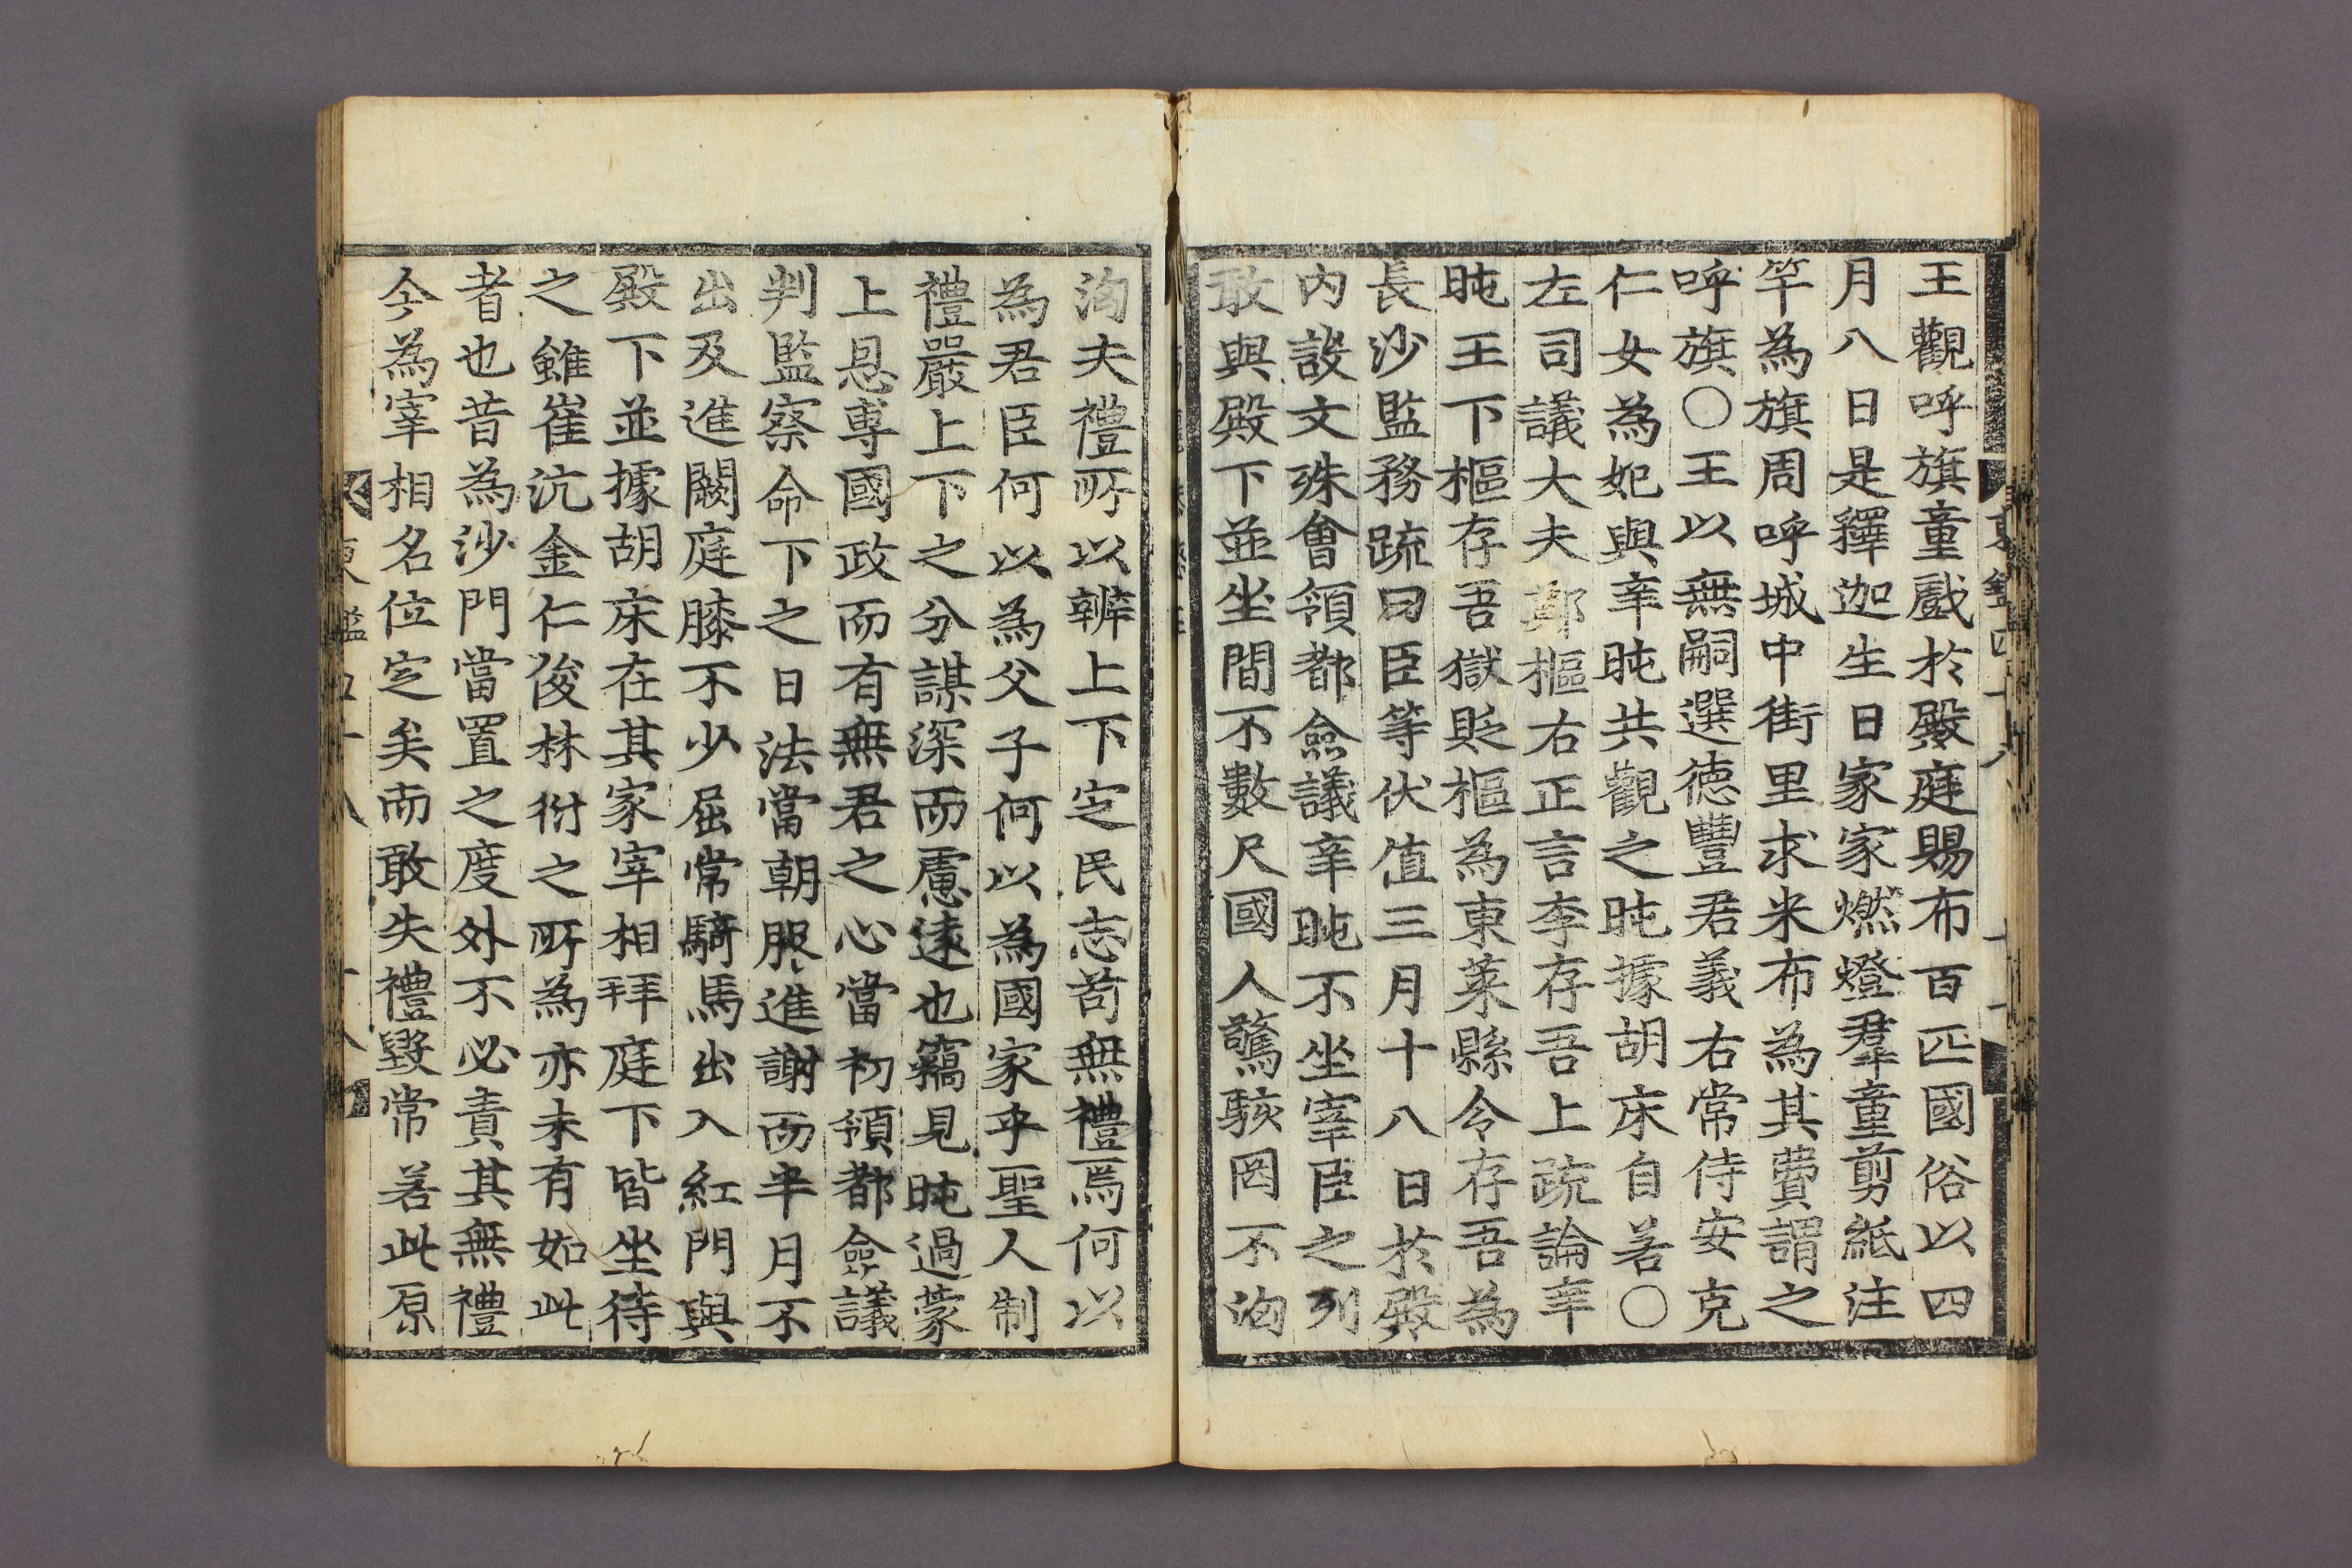 王觀呼旗童戲於殿庭賜布百匹國俗以四
月八日是釋迦生日家家燃燈羣童剪紙注
竿為旗周呼城中街里求米布為其費謂之
呼旗〇王以無嗣選德豐君義右常侍安克
仁女為妃與辛旽共觀之旽據胡床自若〇
左司議大夫鄭樞右正言李存吾上疏論辛
旽王下樞存吾獄貶樞為東萊縣令存吾為
長沙監務疏曰臣等伏值三月十八日於殿
內設文殊會領都僉議辛旽不坐宰臣之列
敢與殿下並坐間不數尺國人驚駭罔不洶
洶夫禮所以辨上下定民志苟無禮焉何以
為君臣何以為父子何以為國家乎聖人制
禮嚴上下之分謀深而慮遠也竊見旽過蒙
上恩專國政而有無君之心當初領都僉議
判監察命下之日法當朝服進謝而半月不
出及進闕庭膝不少屈常騎馬出入紅門與
殿下並據胡床在其家宰相拜庭下皆坐待
之雖崔沆金仁俊林衍之所為亦未有如此
者也昔為沙門當置之度外不必責其無禮
今為宰相名位定矣而敢失禮毀常若此原